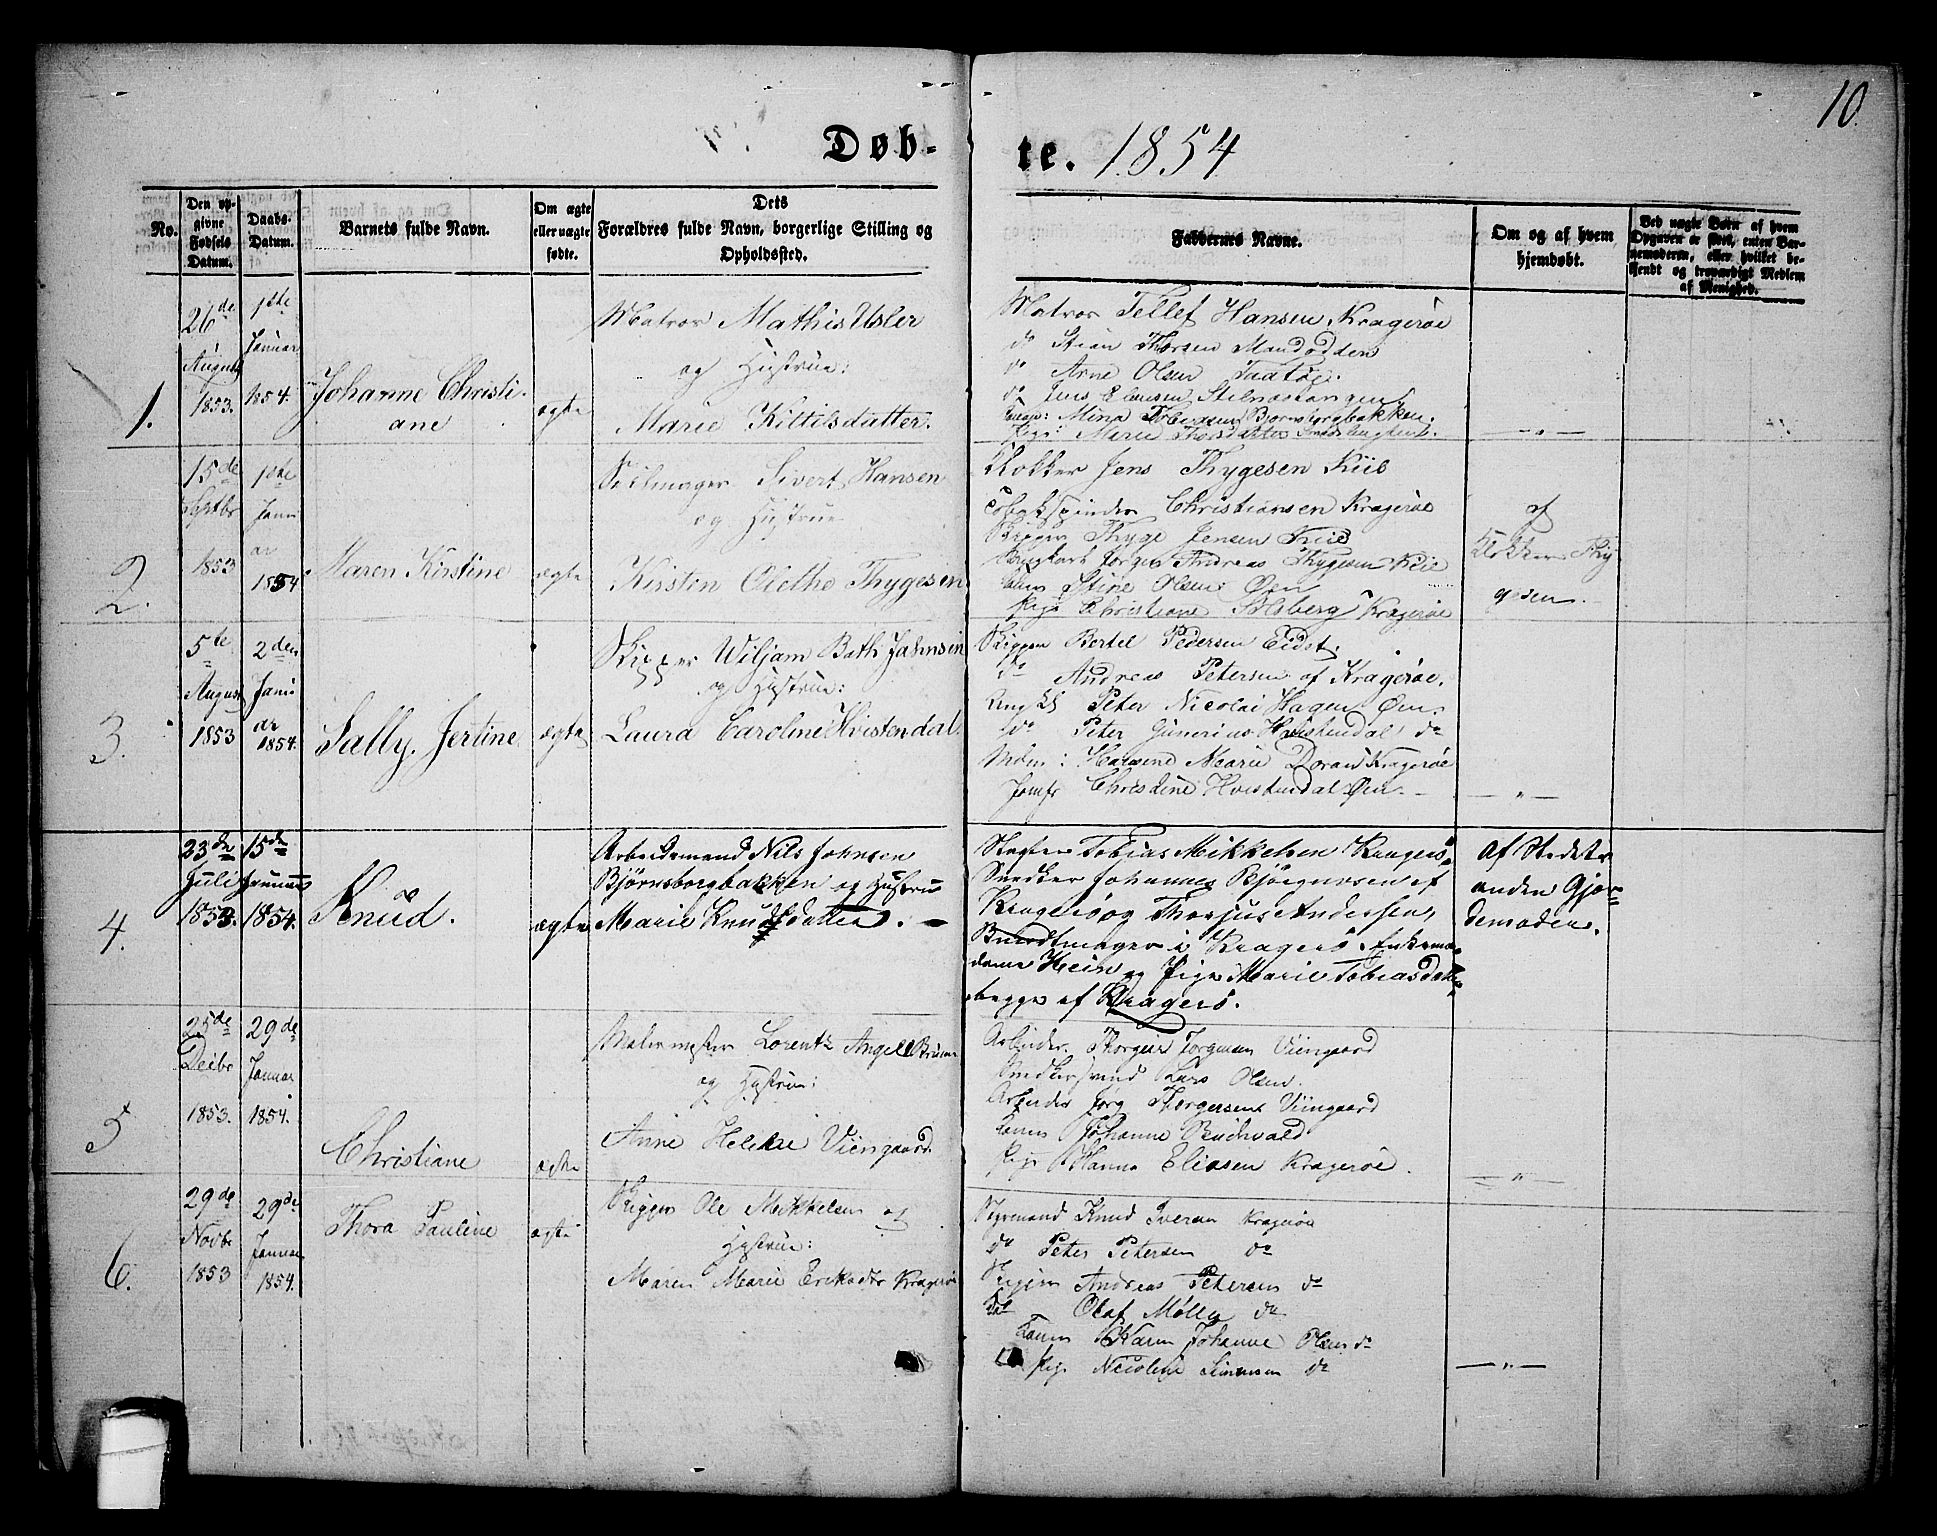 10.
Døb-
te. 1854
No.
Den op-
givne
Fødsels
Datum.
Daabs-
Datum.
Barnets fulde Navn.
Om ægte
eller uægte
fødte.
Dets
Forældres fulde Navn, borgerlige Stilling og
Opholdssted.
Faddernes Navne.
Om og af hvem
hjemdøbt.
Ved uægte Børn af hvem
Opgaven er skeet, enten Bar-
nemoderen, eller hvilket be-
kjendt og troværdigt Medlem
af Menighed.
1.
26de
August
1853.
1ste
Januar
1854.
Johanne Christi-
ane
ægte
Matros Mathis Usler
og Hustrue:
Marie Kittilsdatter.
Matros Tellef Hansen Kragerøe
do Stian Thorsen Mandodden
do Arne Olsen Taatøe.
do Jens
Mina Bjørnsborgbakken.
Pige: Marie Thorsdatter
— " —
2.
15de
Septbr
1853
1ste
Janu
ar
1854
Maren Kirstine
ægte
Seilmager Sivert Hansen
og Hustrue
Kirsten Olethe Thygesen
Klokker Jens Thygesen Kiil
Tobakspinder Christiansen Kragerøe
Skipper Thyge Jensen Kiil
Jørgen Andreas Thygesen Kiil
Stine Olsen Øen
Pige Christiane Solsberg Kragerøe
af
Klokker Thy
gesen.
3.
5te
August
1853
2den
Janu
ar
1854.
Sally Jertine
ægte
Skipper Wiljam Bath Jahnsen
og Hustrue:
Laura Caroline Hvistendal.
Skipper Bertel Pedersen Eidet.
do Andreas Petersen af Kragerøe.
Ungk Peter Nicolai Hagen Øen.
do Peter Gunerius Hvistendal do
Mdm: Hansine Marie Doran Kragerøe
Jomfr Christine Hvistendal Øen
— " —
4.
23de
Juli
1853.
15de
Januar
1854.
Knud.
ægte
Arbeidsmand Nils Johnsen
Bjørnsborgbakken og Hustrue
Marie Knudsdatter. —
Slagter Tobias Mikkelsen Kragerø,
Snedker Johannes Bjørgursen af
Kragerø og Thorjus Andersen,
Buntmager i Kragerø, Enkema-
dame Hein og Pige Marie Tobiasdatter
begge af Kragerø.
Af Stedets
anden Gjor-
demoder.
5
25de
Decbr
1853.
29de
Januar
1854.
Christiane
ægte
Malermester Lorentz Angell Bruun
og Hustrue:
Anne Helene Viingaard
Arbeider Thorgier Jorgensen Viingaard
Snedkersvend Lars Olsen.
Arbeider Jørg Thorgersen Viingaard
Konen Johanne Buchvald
Pige Hanna Eliasen Kragerøe.
— " —
6.
29de
Novbr
1853
29de
Januar
1854.
Thora Pauline
ægte
Skipper Ole Mikkelsen og
Hustrue:
Maren Marie Eriksdtr Kragerøe
Styrmand Knud Iversen Kragerøe
do Peter Petersen do
Skipper Andreas Petersen do
do Olaf Møller do
Konen Karen Johanne Olsen do
Pige Nicoline Simonsen do
— " —